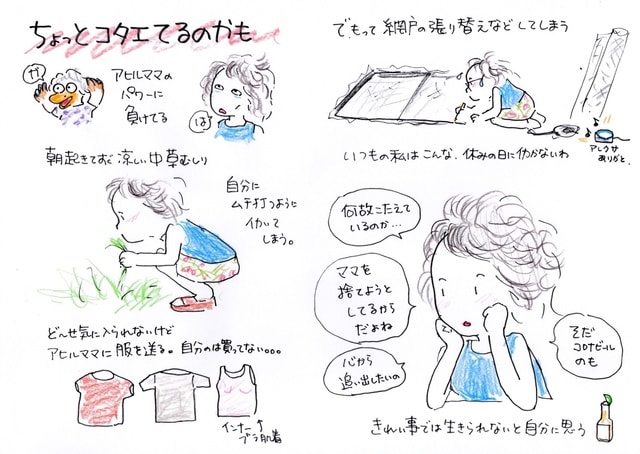 ちょっとコタエてるのかも
ガ
アヒルママの
パワーに
負けてる
は
朝起きてすぐ涼しい中草むしり
自分に
ムチ打つように
働いて
しまう。
どんせ気に入られないけど
アヒルママに服を送る。自分のは買ってない。。。
インナー
ブラ肌着
でもって網戸の張り替えなどしてしまう
アレクサ
ありがと、
いつもの私はこんな、休みの日に働かないわ
何故こたえて
いるのか…
ママを
捨てようと
してるから
だよね
心から
追い出したいの
そだ
コロナビール
のも
きれい事では生きられないと自分に思う